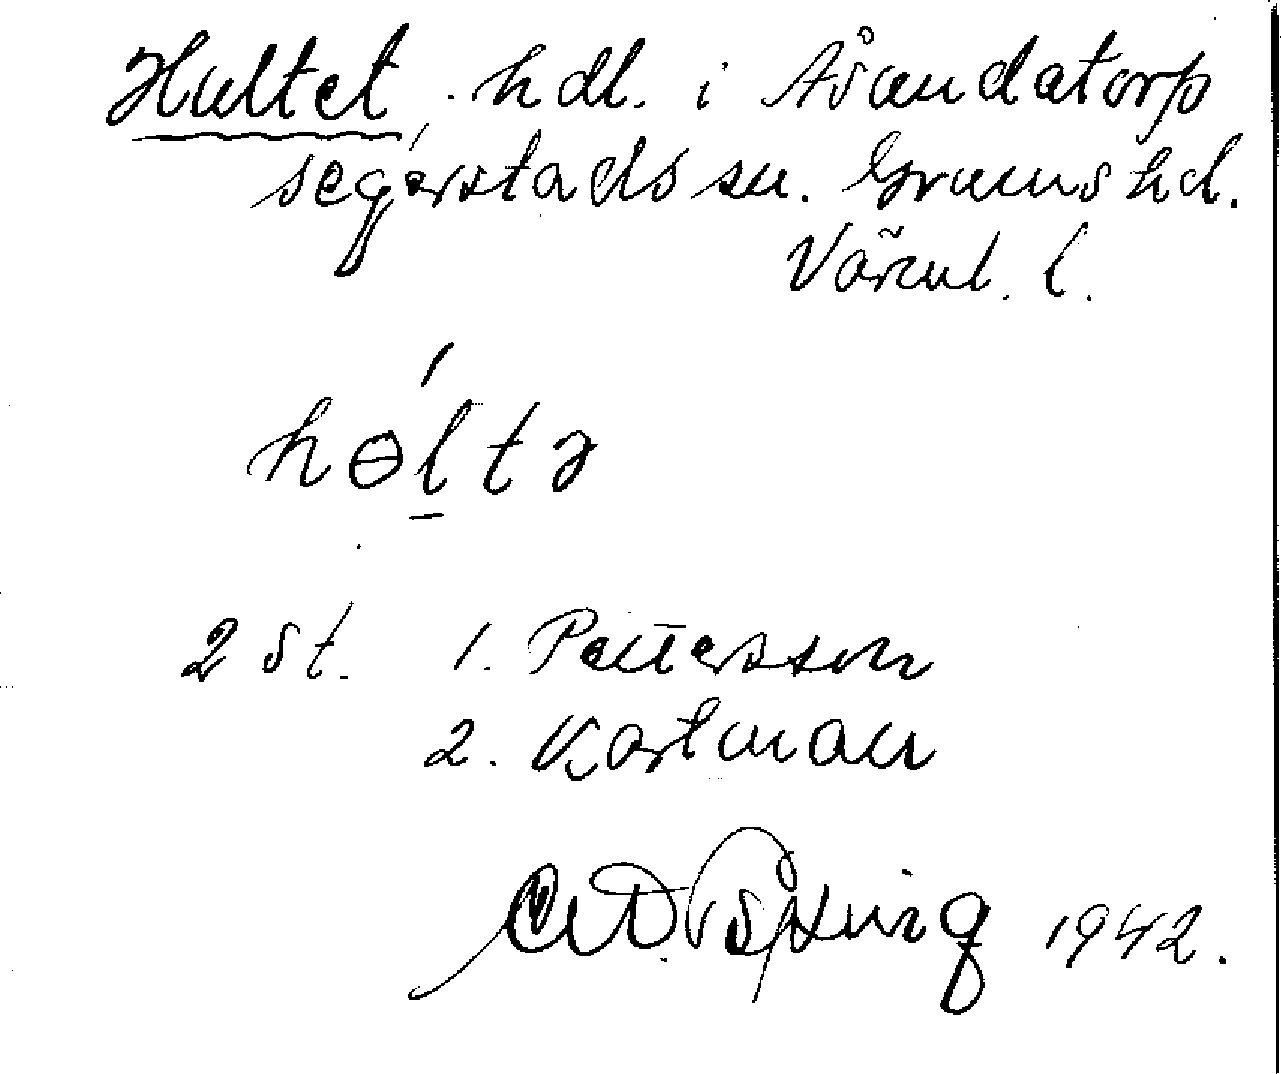 Hultet, hdl. i Åsundatorp
segerstads sn. Grums hd.
Värml. l.
hɵ́l̠tə
2 st. 1. Pettersson
2. Kartman
1942.